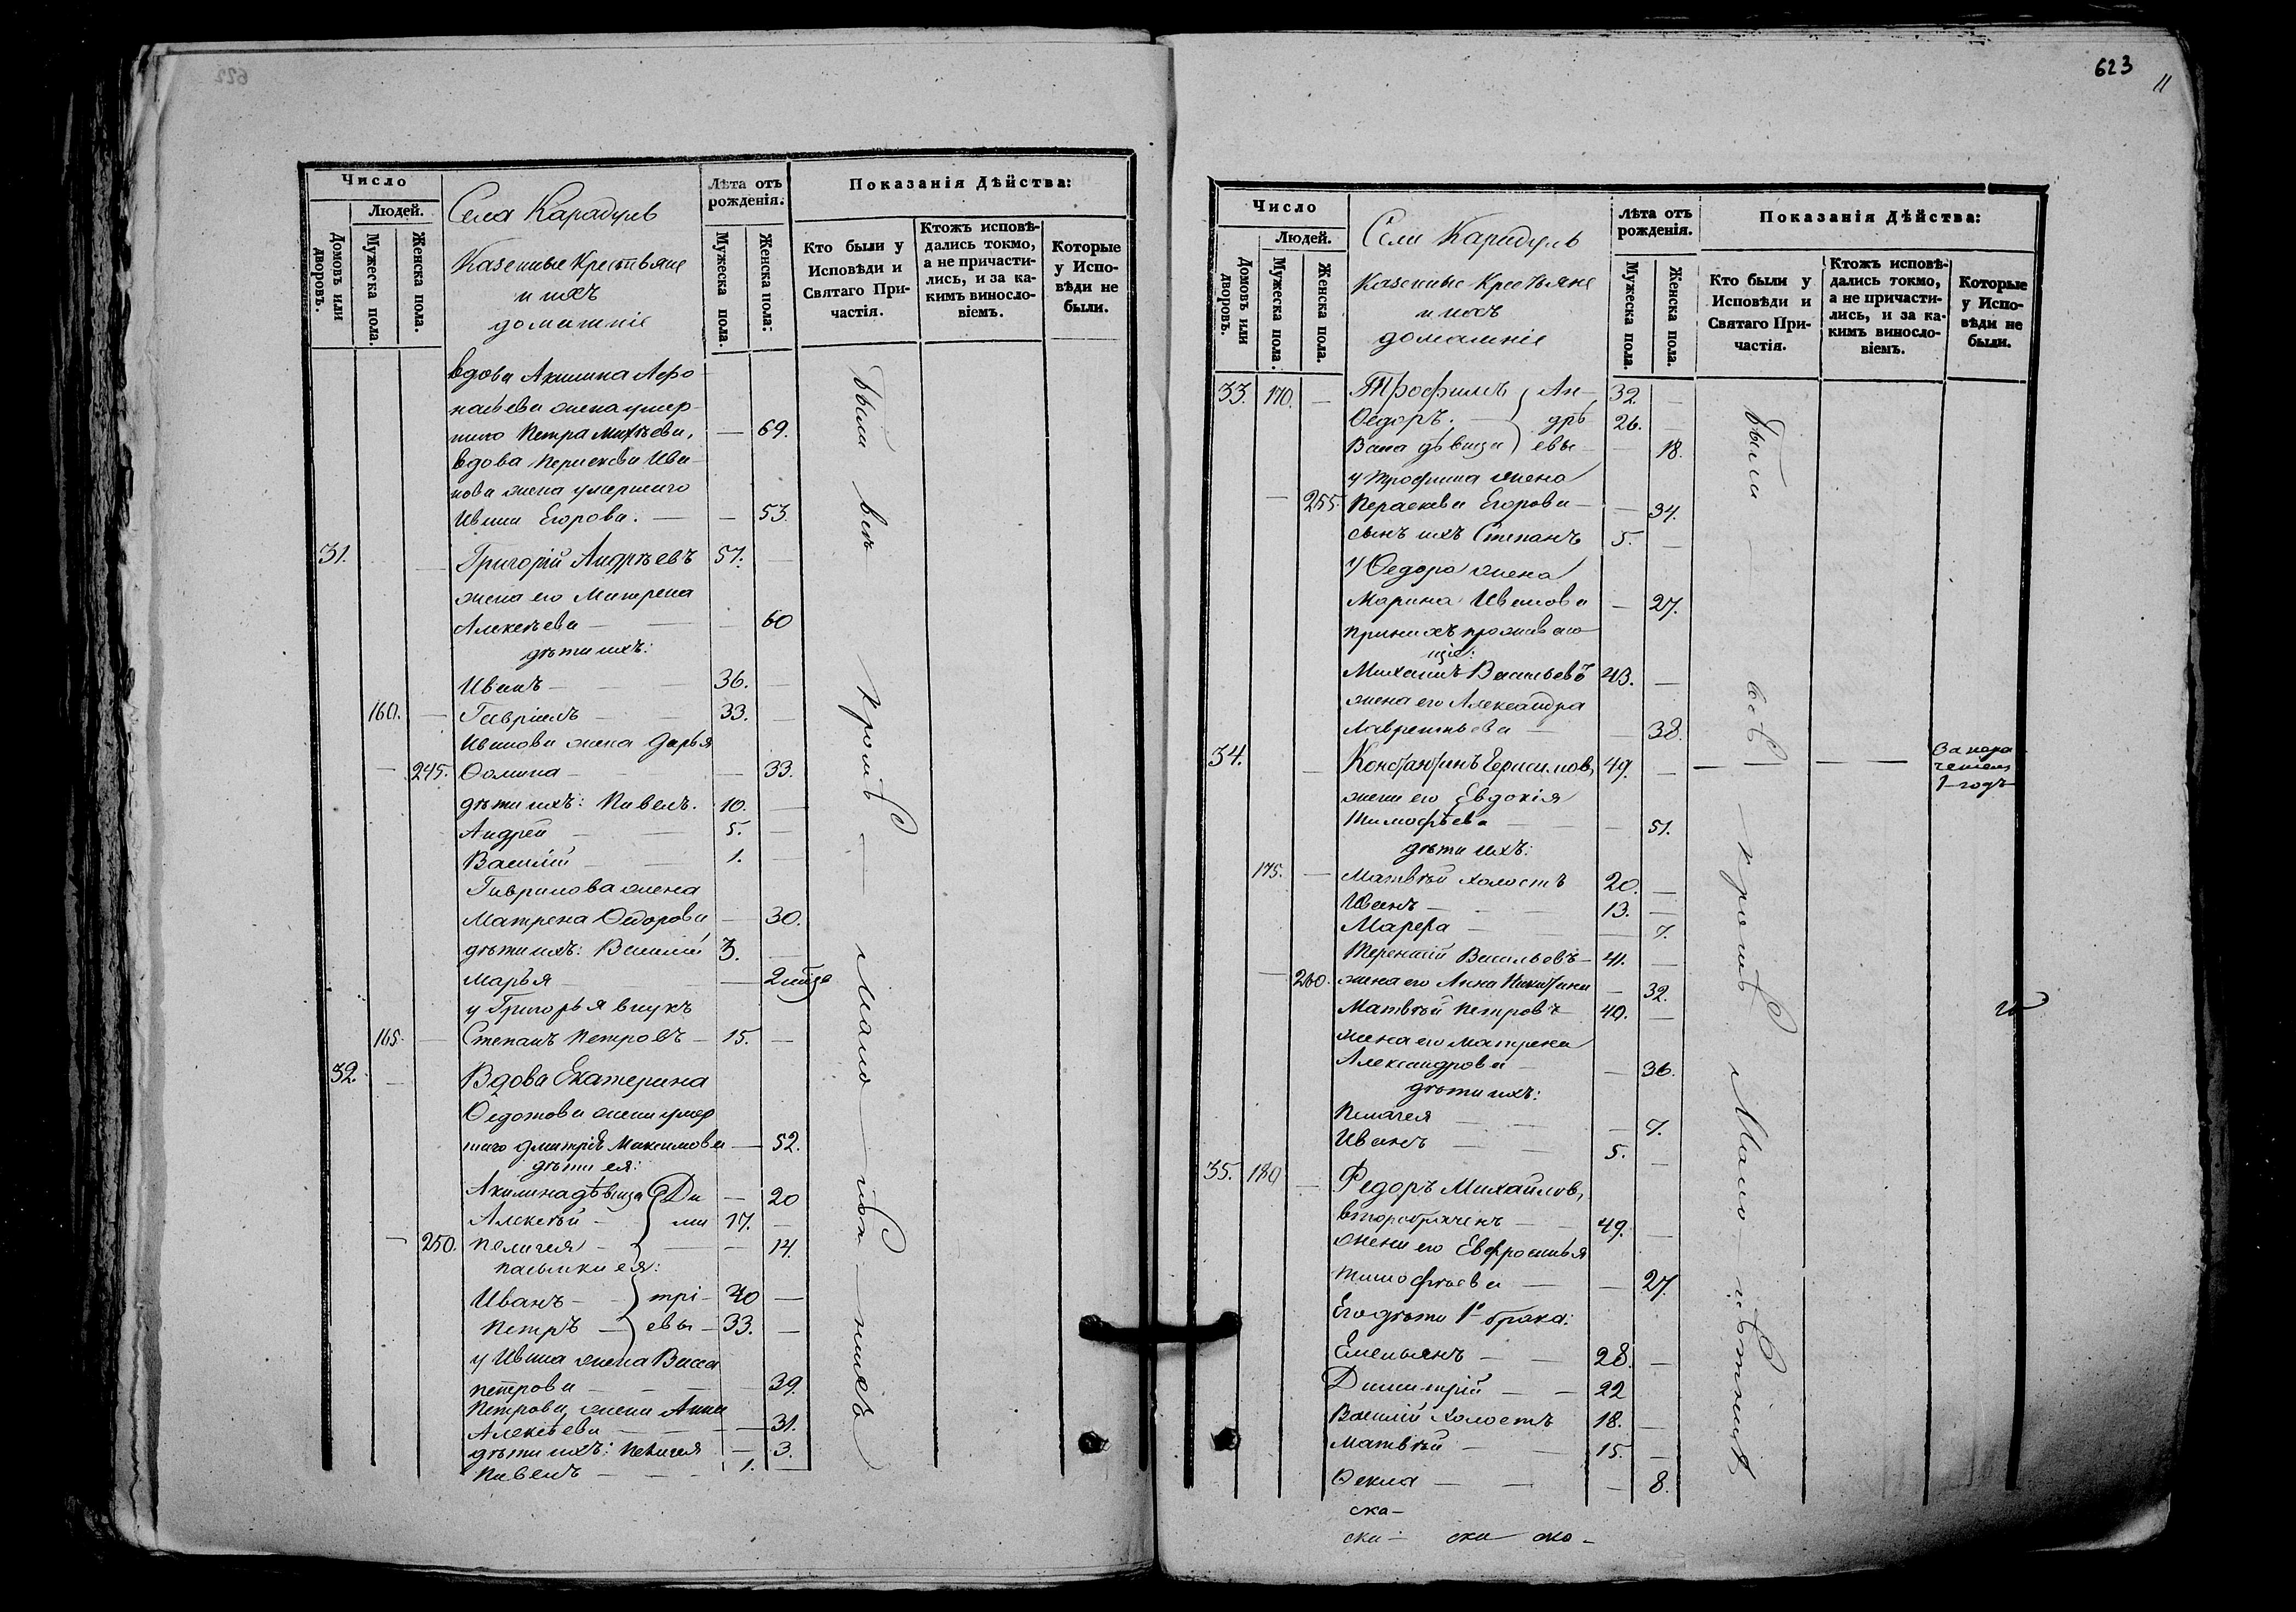 622
Число
Людей.
Домовъ или дворовъ.
Мужеска пола.
Женска пола.
Села Карадуль
Казенные Крестьяне
и ихъ
домашніе
Лѣта отъ рожденія.
Мужеска пола.
Женска пола:
Показанія Дѣйства:
Кто были у Исповѣди и Святаго Причастія.
Ктожъ исповѣдались токмо, а не причастились, и за какимъ винословіемъ.
Которые у Исповѣди не были.
вдова Акилина Афо
насьева жена умер
шаго Петра Михѣева, — 69.
вдова Параскева Ива
нова жена умершаго
Ивана Егорова. — — 53.
31. — Григорій Андрѣевъ 57. —
жена его Матрена
Алексѣева — — 60
дѣти ихъ:
Иванъ — — 36. —
160. — Гавріилъ — — 33. —
Иванова жена Дарья
— 245. Фомина — — 33.
дѣти ихъ: Павелъ. 10. —
Андрей — — 5. —
Василій — — 1. —
Гаврилова жена
Матрена Федорова — 30.
дѣти ихъ: Василій 3. —
Марья — 2
у Григорья внукъ
165. — Степанъ Петровъ — 15. —
32. — Вдова Екатерина
Федотова жена умер
шаго Дмитрія Максимова — 52.
дѣти ея:
Акилина дѣвица Ди — 20
Алексѣй — ми 17. —
— 250. Пелагея — — — 14.
пасынки ея:
Иванъ — трі — 40 —
Петръ — евы — 33. —
у Ивана жена Васса
Петрова — — — 39.
Петрова жена Анна
Алексѣева — — — 31.
дѣти ихъ: Пелагея — 3.
Павелъ — — — 1. —
Были всѣ — кромѣ — мало — лѣт нихъ
623
11
Число
Людей.
Домовъ или дворовъ.
Мужеска пола
Женска пола.
Села Карадуль
Казенные Крестьяне
и ихъ
домашніе
Лѣта отъ рожденія.
Мужеска пола
Женска пола.
Показанія Дѣйства:
Кто были у Исповѣди и Святаго Причастія.
Ктожъ исповѣдались токмо, а не причастились, и за какимъ винословіемъ.
Которые у Исповѣди не были.
33. 170. — Трофимъ Ан— 32. —
Федоръ, — дрѣ 26. —
Васа дѣвица евы — — 18.
у Трофима жена
— 255. Параскева Егорова — — 34.
сынъ ихъ Степанъ 5. —
у Федора жена
Марина Иванова — 27.
при нихъ прожива ю
щіе:
Михаилъ Васильевъ 43. —
жена его Александра
Лаврентьева — — 38.
34. — Константинъ Герасимов, 49. — — — —
1 годъ
жена его Евдокія
Тимофѣева — — — 51.
дѣти ихъ:
175. — Матвѣй холостъ 20. —
Иванъ — — — 13. —
Марфа — — — 7.
Терентій Васильевъ — 41. —
— 260. жена его Анна Никитина — 32.
Матвѣй Петровъ 40. —
жена его Матрена
Александрова — — 36.
дѣти ихъ:
Пелагея — — — 7.
Иванъ — — 5. —
35. 180 — Федоръ Михайлов,
второбраченъ — — 49. —
жена его Евфросинья
Тимофѣева — — 27.
Его дѣти 1го брака:
Емельянъ — — 28. —
Димитрій — — 22
Василій холостъ 18. —
Матвѣй — — 15. —
Фекла — — — 8.
ска—
ска — ска ска —
Были — всѣ — кромѣ — Мало — лѣтнихъ